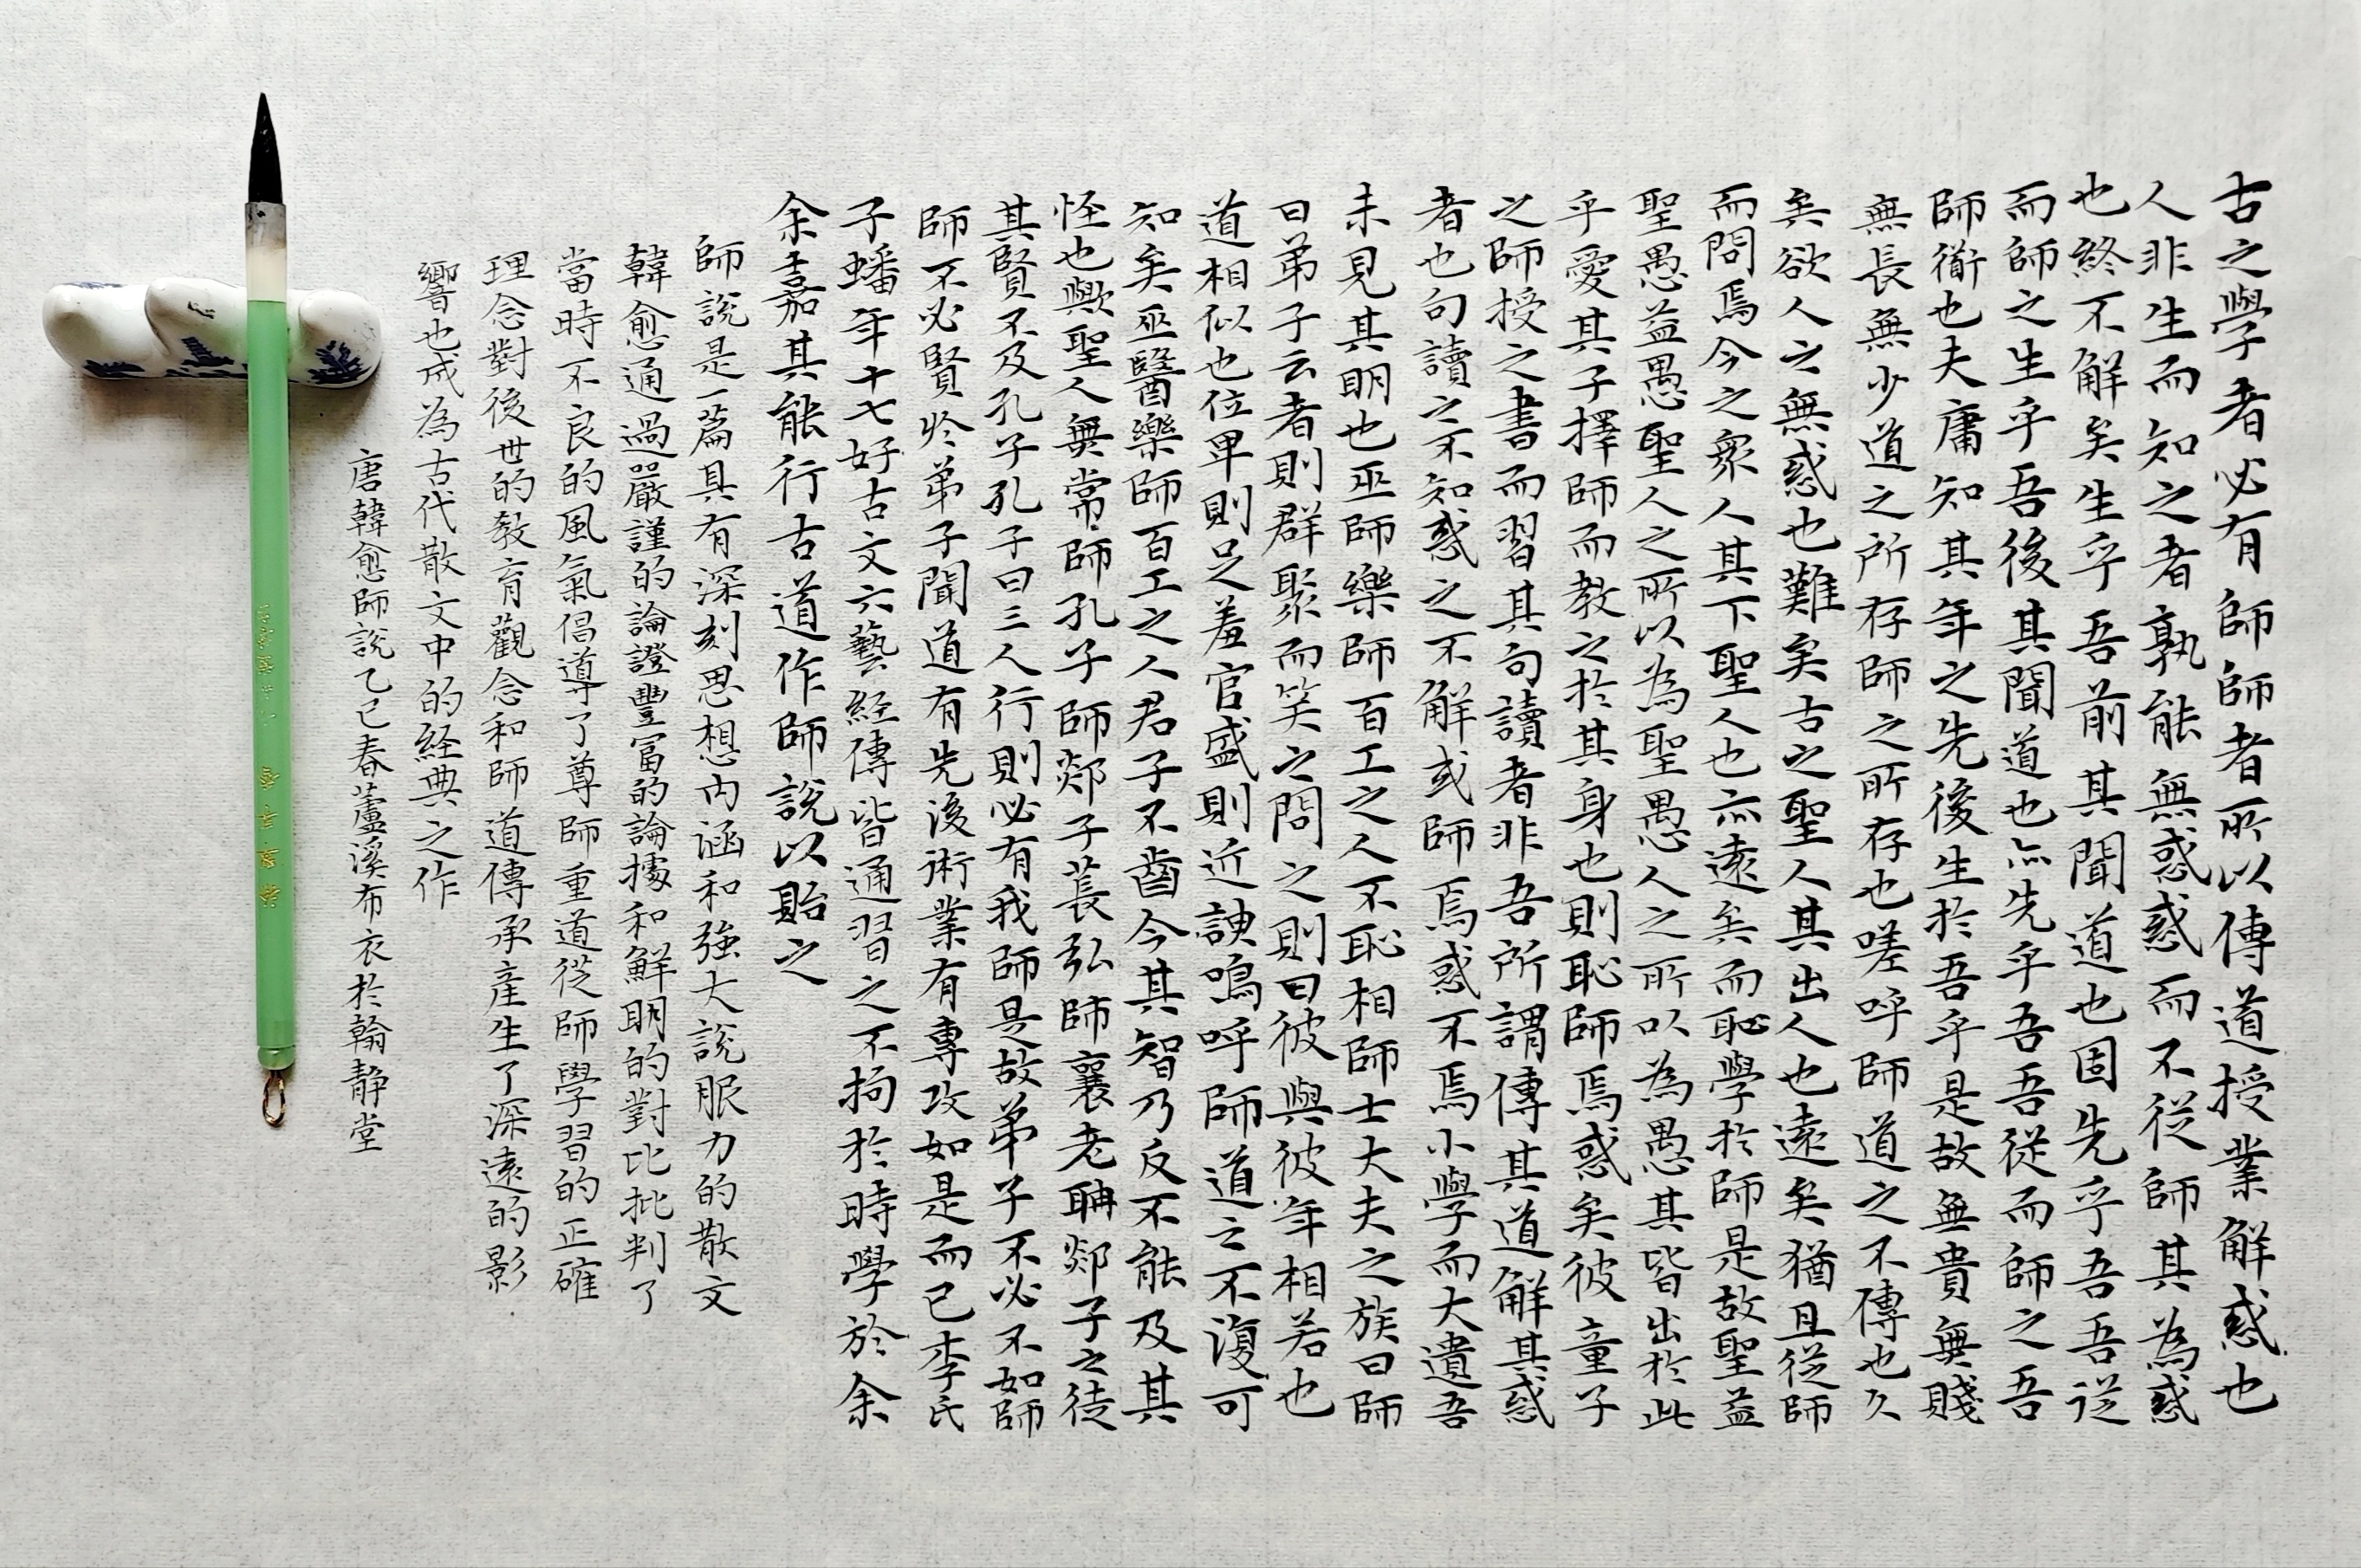 古之學者必有師師者所以傳道授業解惑也
人非生而知之者孰能無惑惑而不从師其為惑
也終不解矣生乎吾前其聞道也固先乎吾吾従
而師之生乎吾後其聞道也亦先乎吾吾從而師之吾
師衜也夫庸知其年之先後生於吾乎是故無貴無賤
無長無少道之所存師之所存也嗟呼師道之不傳也久
矣欲人之無惑也難矣古之聖人其出人也遠矣猶且從師
而問焉今之衆人其下聖人也亦遠矣而恥學於師是故聖益
聖愚益愚聖人之所以為聖愚人之所以為愚其皆出於此
乎愛其子擇師而教之於其身也則恥師焉惑矣彼童子
之師授之書而習其句讀者非吾所謂傳其道解其惑
者也句讀之不知惑之不解或師焉惑不焉小學而大遺吾
未見其明也巫師樂師百工之人不恥相師士大夫之族曰師
曰弟子云者則群聚而笑之問之則曰彼與彼年相若也
道相似也位卑則足羞官盛則近諛嗚呼師道之不復可
知矣巫醫樂師百工之人君子不齒今其智乃反不能及其
怪也歟聖人無常師孔子師郯子萇弘師襄老聃郯子之徒
其賢不及孔子孔子曰三人行則必有我師是故弟子不必不如師
師不必賢於弟子聞道有先後術業有專攻如是而已李氏
子蟠年十七好古文六藝経傳皆通習之不拘於時學於余
余嘉其能行古道作師說以貽之
師說是一篇具有深刻思想内涵和強大說服力的散文
韓愈通過嚴謹的論證豐富的論據和鮮明的對比批判了
當時不良的風氣倡導了尊師重道從師學習的正確
理念對後世的教育觀念和師道傳承産生了深遠的影
響也成為古代散文中的経典之作
唐韓愈師說乙巳春蘆溪布衣於翰靜堂